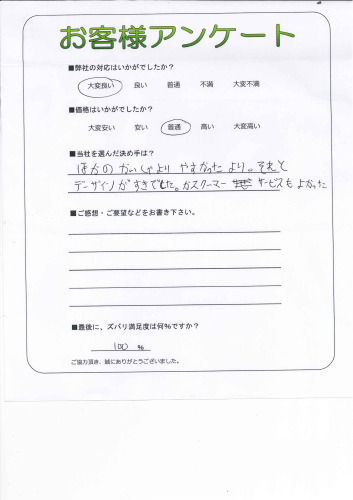 お客様アンケート
■弊社の対応はいかがでしたか？
大変良い 良い 普通 不満 大変不満
■価格はいかがでしたか？
大変安い 安い 普通 高い 大変高い
■当社を選んだ決め手は？
ほかのかいしゃより やすかったより。それと
デーザイノがすきでした。カスターマー サービスもよかった
■ご感想・ご要望などをお書き下さい。
■最後に、ズバリ満足度は何%ですか？
100 %
ご協力頂き、誠にありがとうございました。